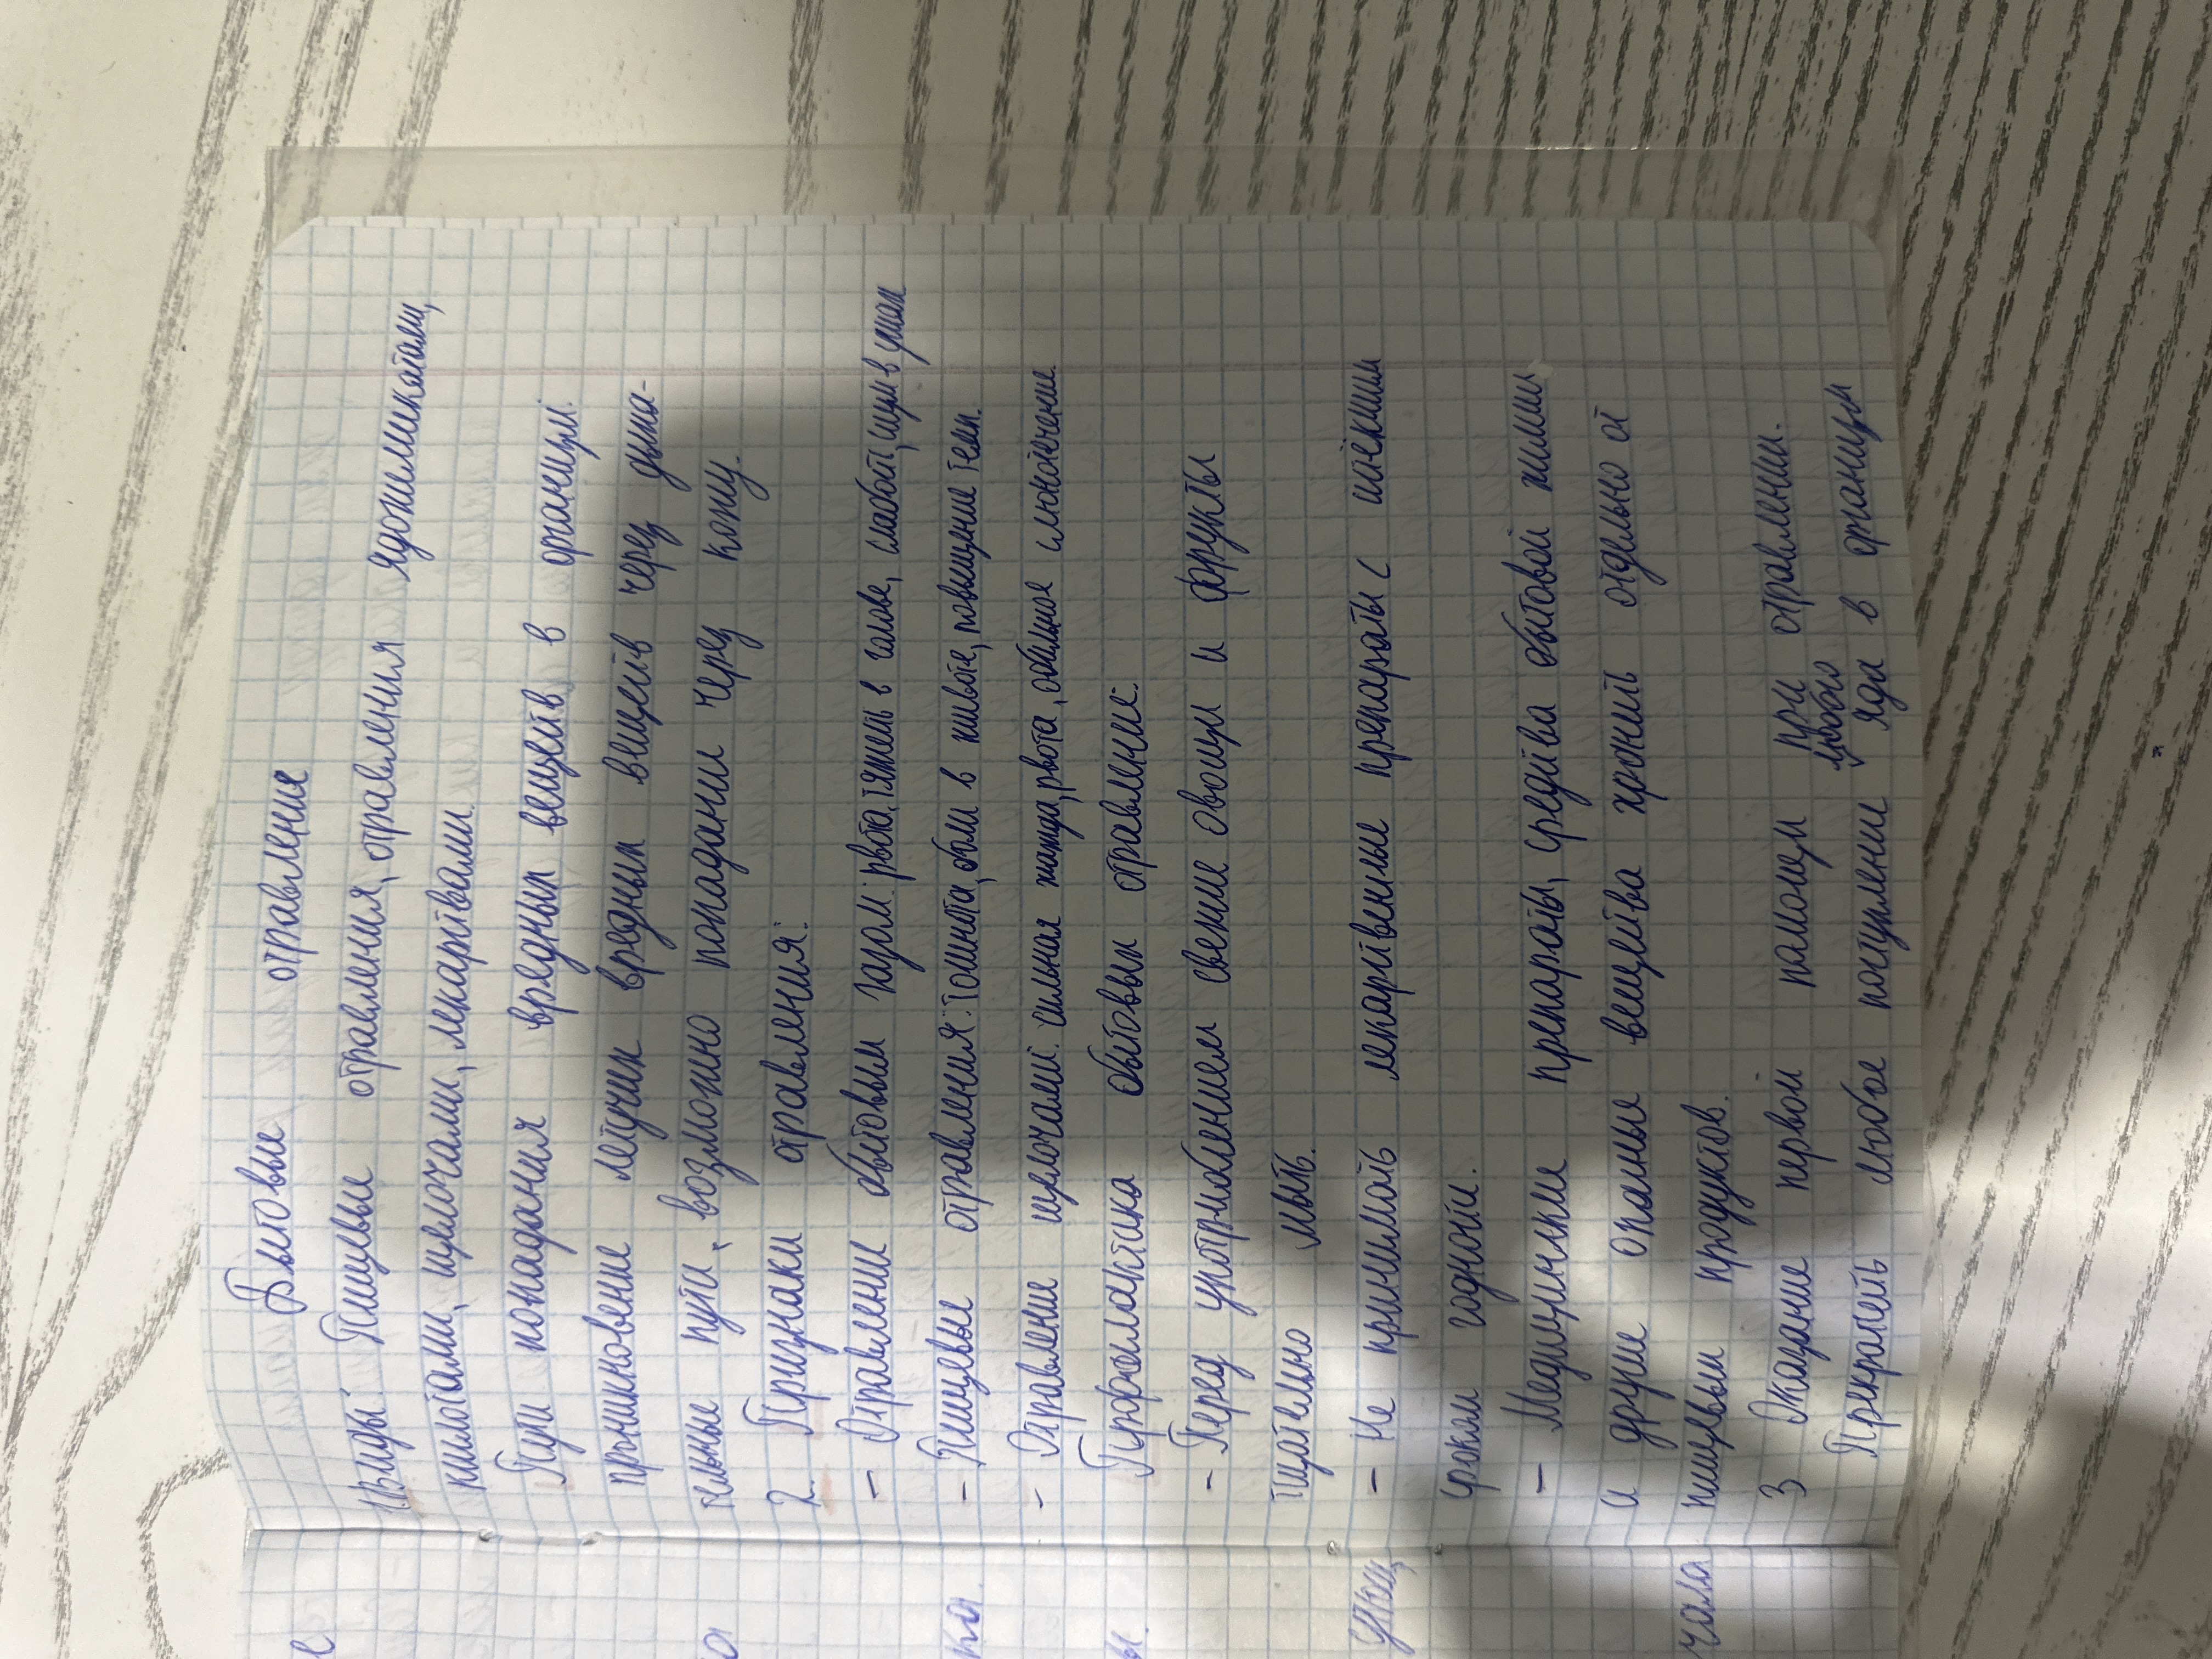 Бытовые отравление
1 Виды: Пищевые отравления, отравления ядохимикатами,
кислотами, щелочами, лекарствами.
Пути попадания вредных веществ в организм:
проникновение летучих вредных веществ через дыха-
тельные пути, возможно попадании через кожу.
2. Признаки отравления:
- Отравление бытовым газом: рвота, тяжесть в голове, слабость, шум в ушах
- Пищевые отравления: тошнота, боли в животе, повышение тем.
- Отравление щелочами: сильная жажда, рвота, обильное слюнотечение
Профилактика бытовых отравление:
- Перед употреблением свежие овощи и фрукты
тщательно мыть.
- Не принимать лекарственные препараты с истёкшим
сроком годности.
- Медицинские препараты, средства бытовой химии
и другие опасные вещества хранить отдельно от
пищевых продуктов.
3 Оказание первой помощи при отравлении.
Прекратить любое поступление любого яда в организм
е
а
ка.
ы.
ующ,
чала